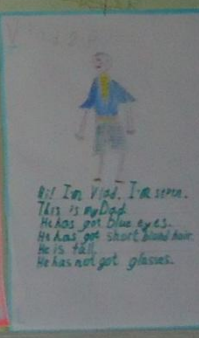 Hi! I'm Vlad. I'm seven.
This is my Dad.
He has got blue eyes.
He has got short blond hair.
He is tall.
He has not got glasses.